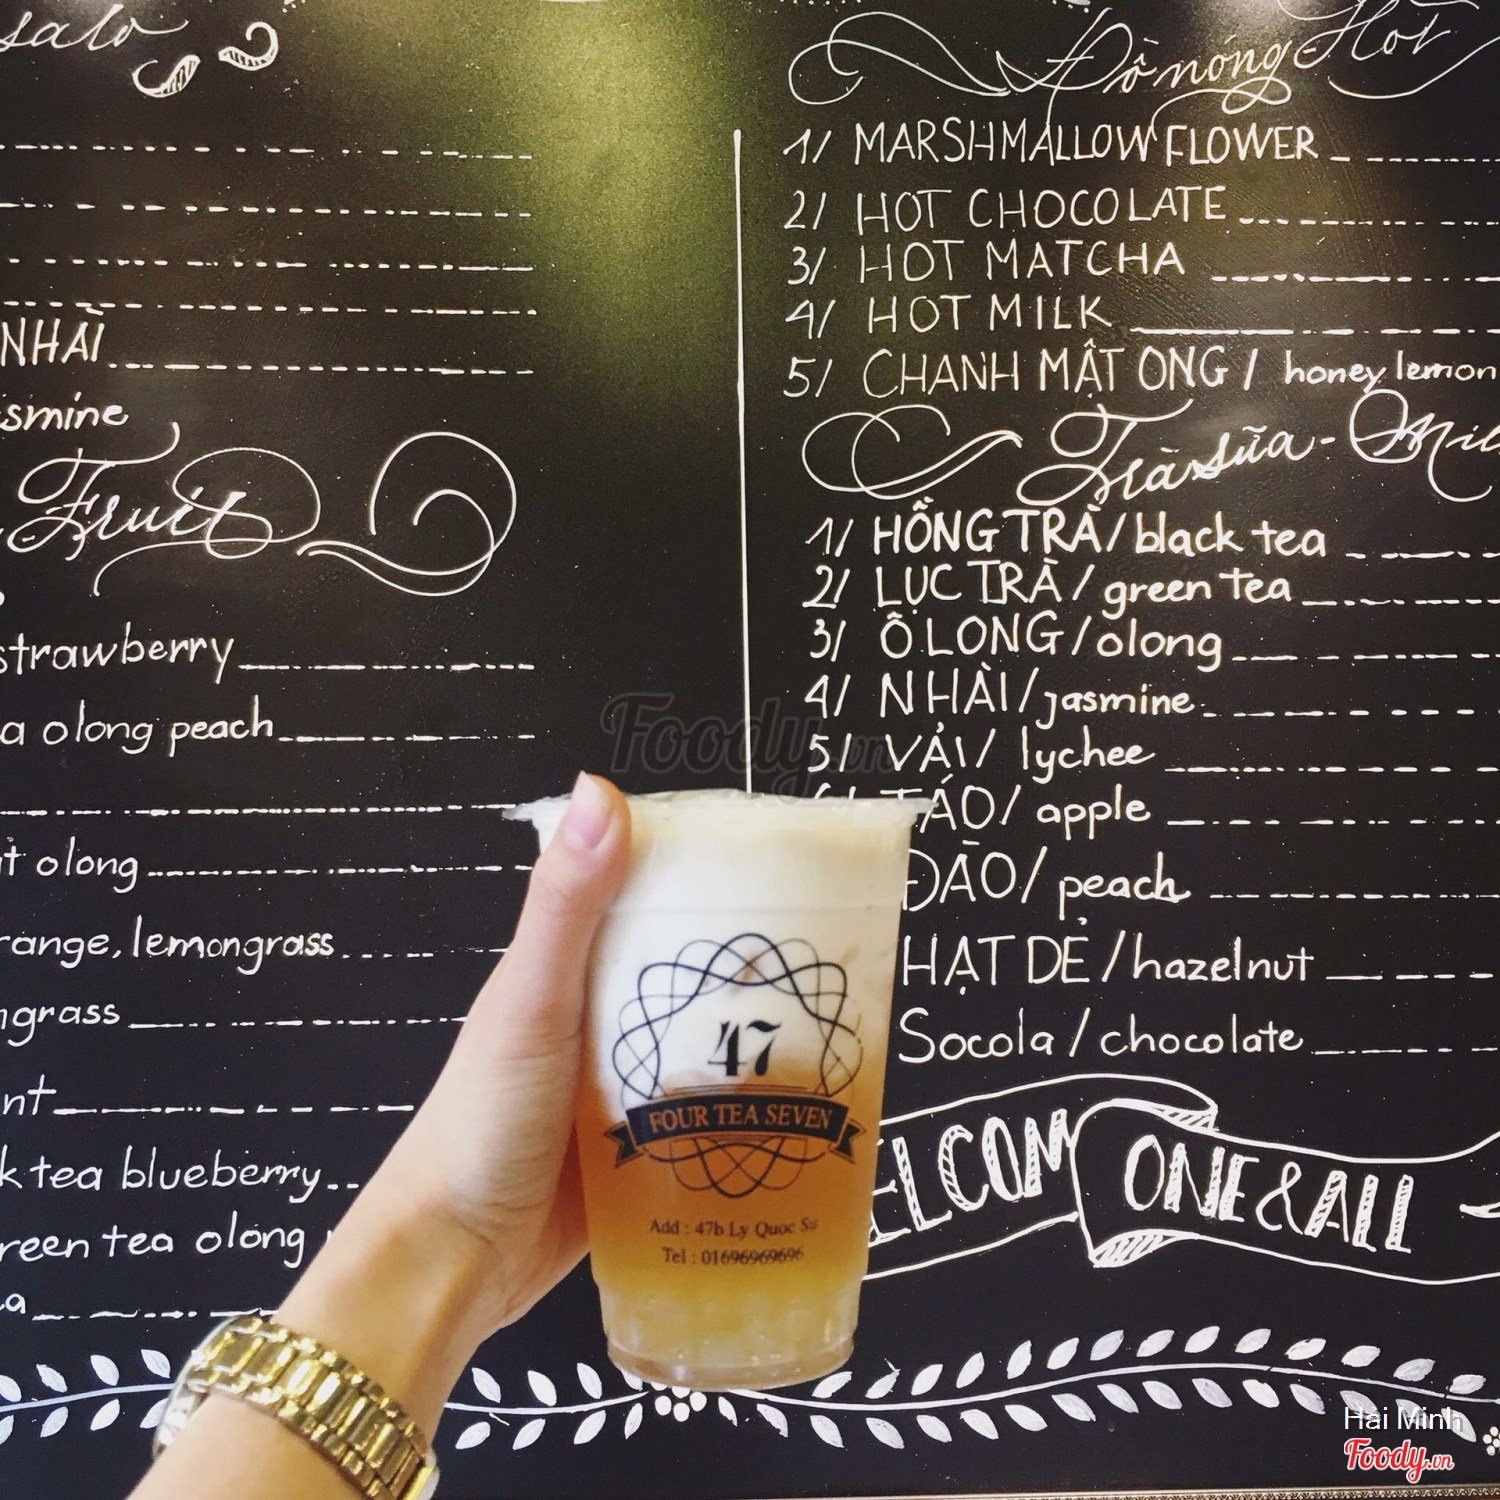 salo
NHÀI
smine
Fruit
strawberry
a olong peach
olong
range, lemongrass
ngrass
nt
k tea blueberry
reen tea olong
a
Đồ nóng - Hot
1/ MARSHMALLOW FLOWER
2/ HOT CHOCOLATE
3/ HOT MATCHA
4/ HOT MILK
5/ CHANH MẬT ONG / honey lemon
Trà sữa - Mil
1/ HỒNG TRÀ / black tea
2/ LỤC TRÀ / green tea
3/ Ô LONG / olong
4/ NHÀI / jasmine
5/ VẢI / lychee
TÁO / apple
ĐÀO / peach
HẠT DẺ / hazelnut
Socola / chocolate
ELCOM ONE & ALL
47
FOUR TEA SEVEN
Add : 47b Ly Quoc Su
Tel : 01696969696
Foody.vn
Hải Minh
Foody.vn